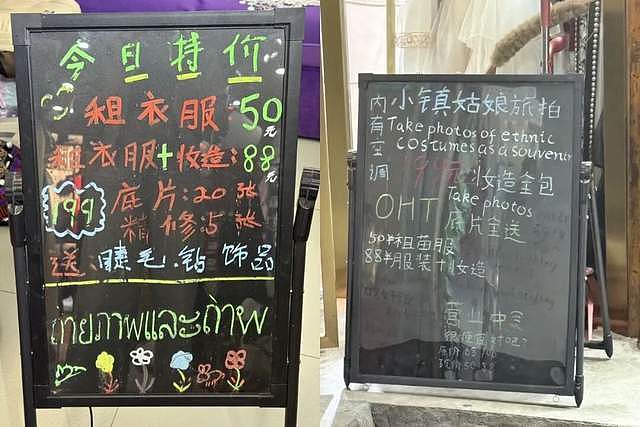 今日特价
租衣服:50元
租衣服+妆造:88元
199
底片:20张
精修:5张
送:睫毛.钻 饰品
ถ่ายภาพและถ่าพ
内有空调
小镇姑娘旅拍
Take photos of ethnic
costumes as a souvenir
199元:妆造全包
OHT
Take photos
底片全送
50¥租苗服
88¥服装+妆造
营业中
很便宜对吧?